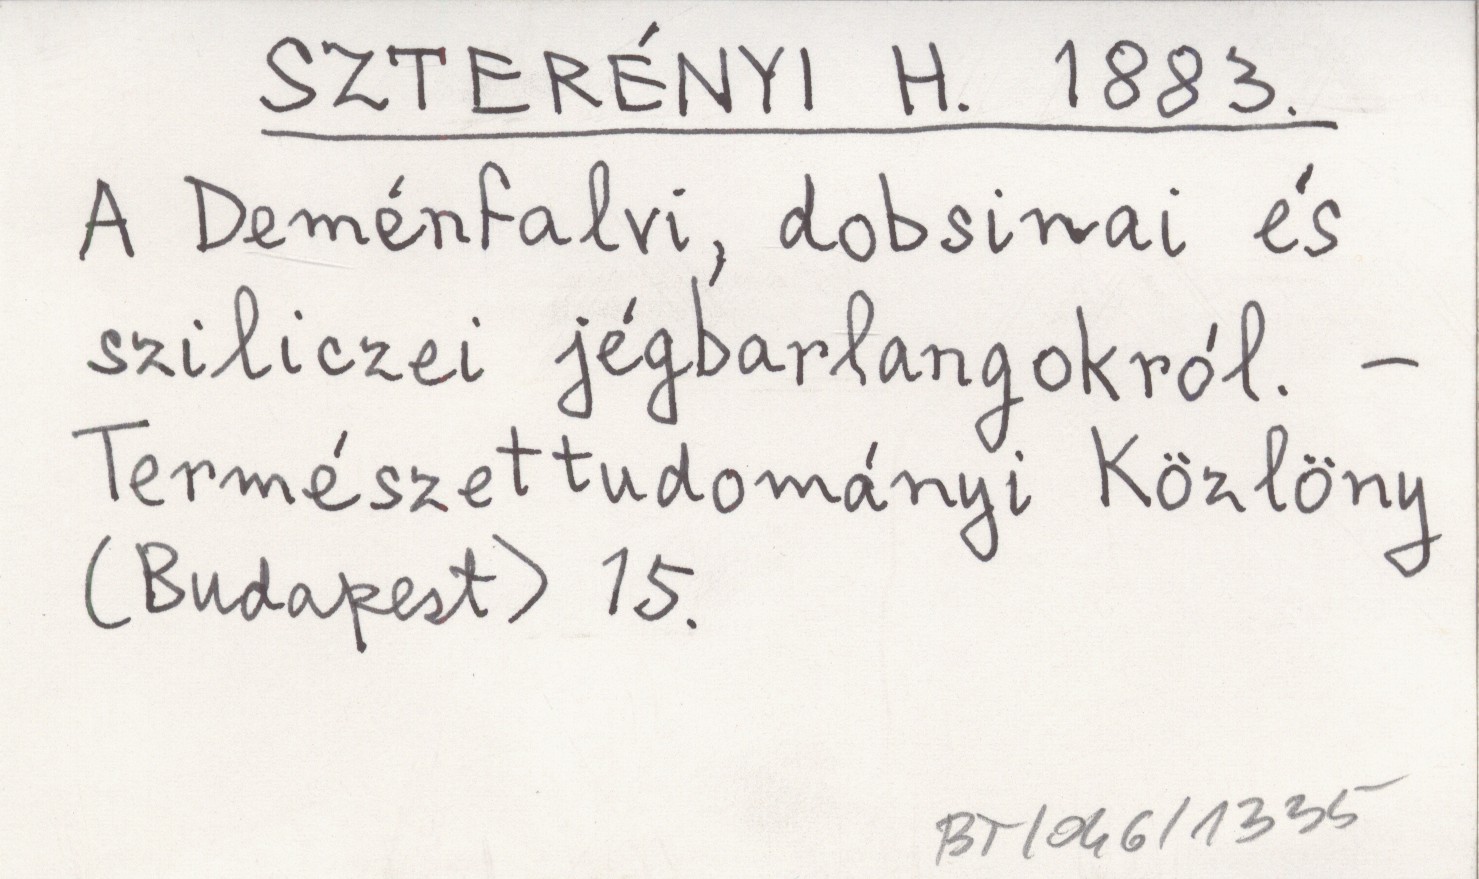 SZTERÉNYI H. 1883.
A Deménfalvi, dobsinai és
sziliczei jégbarlangokról. –
Természettudományi Közlöny
(Budapest) 15.
BT/046/1335